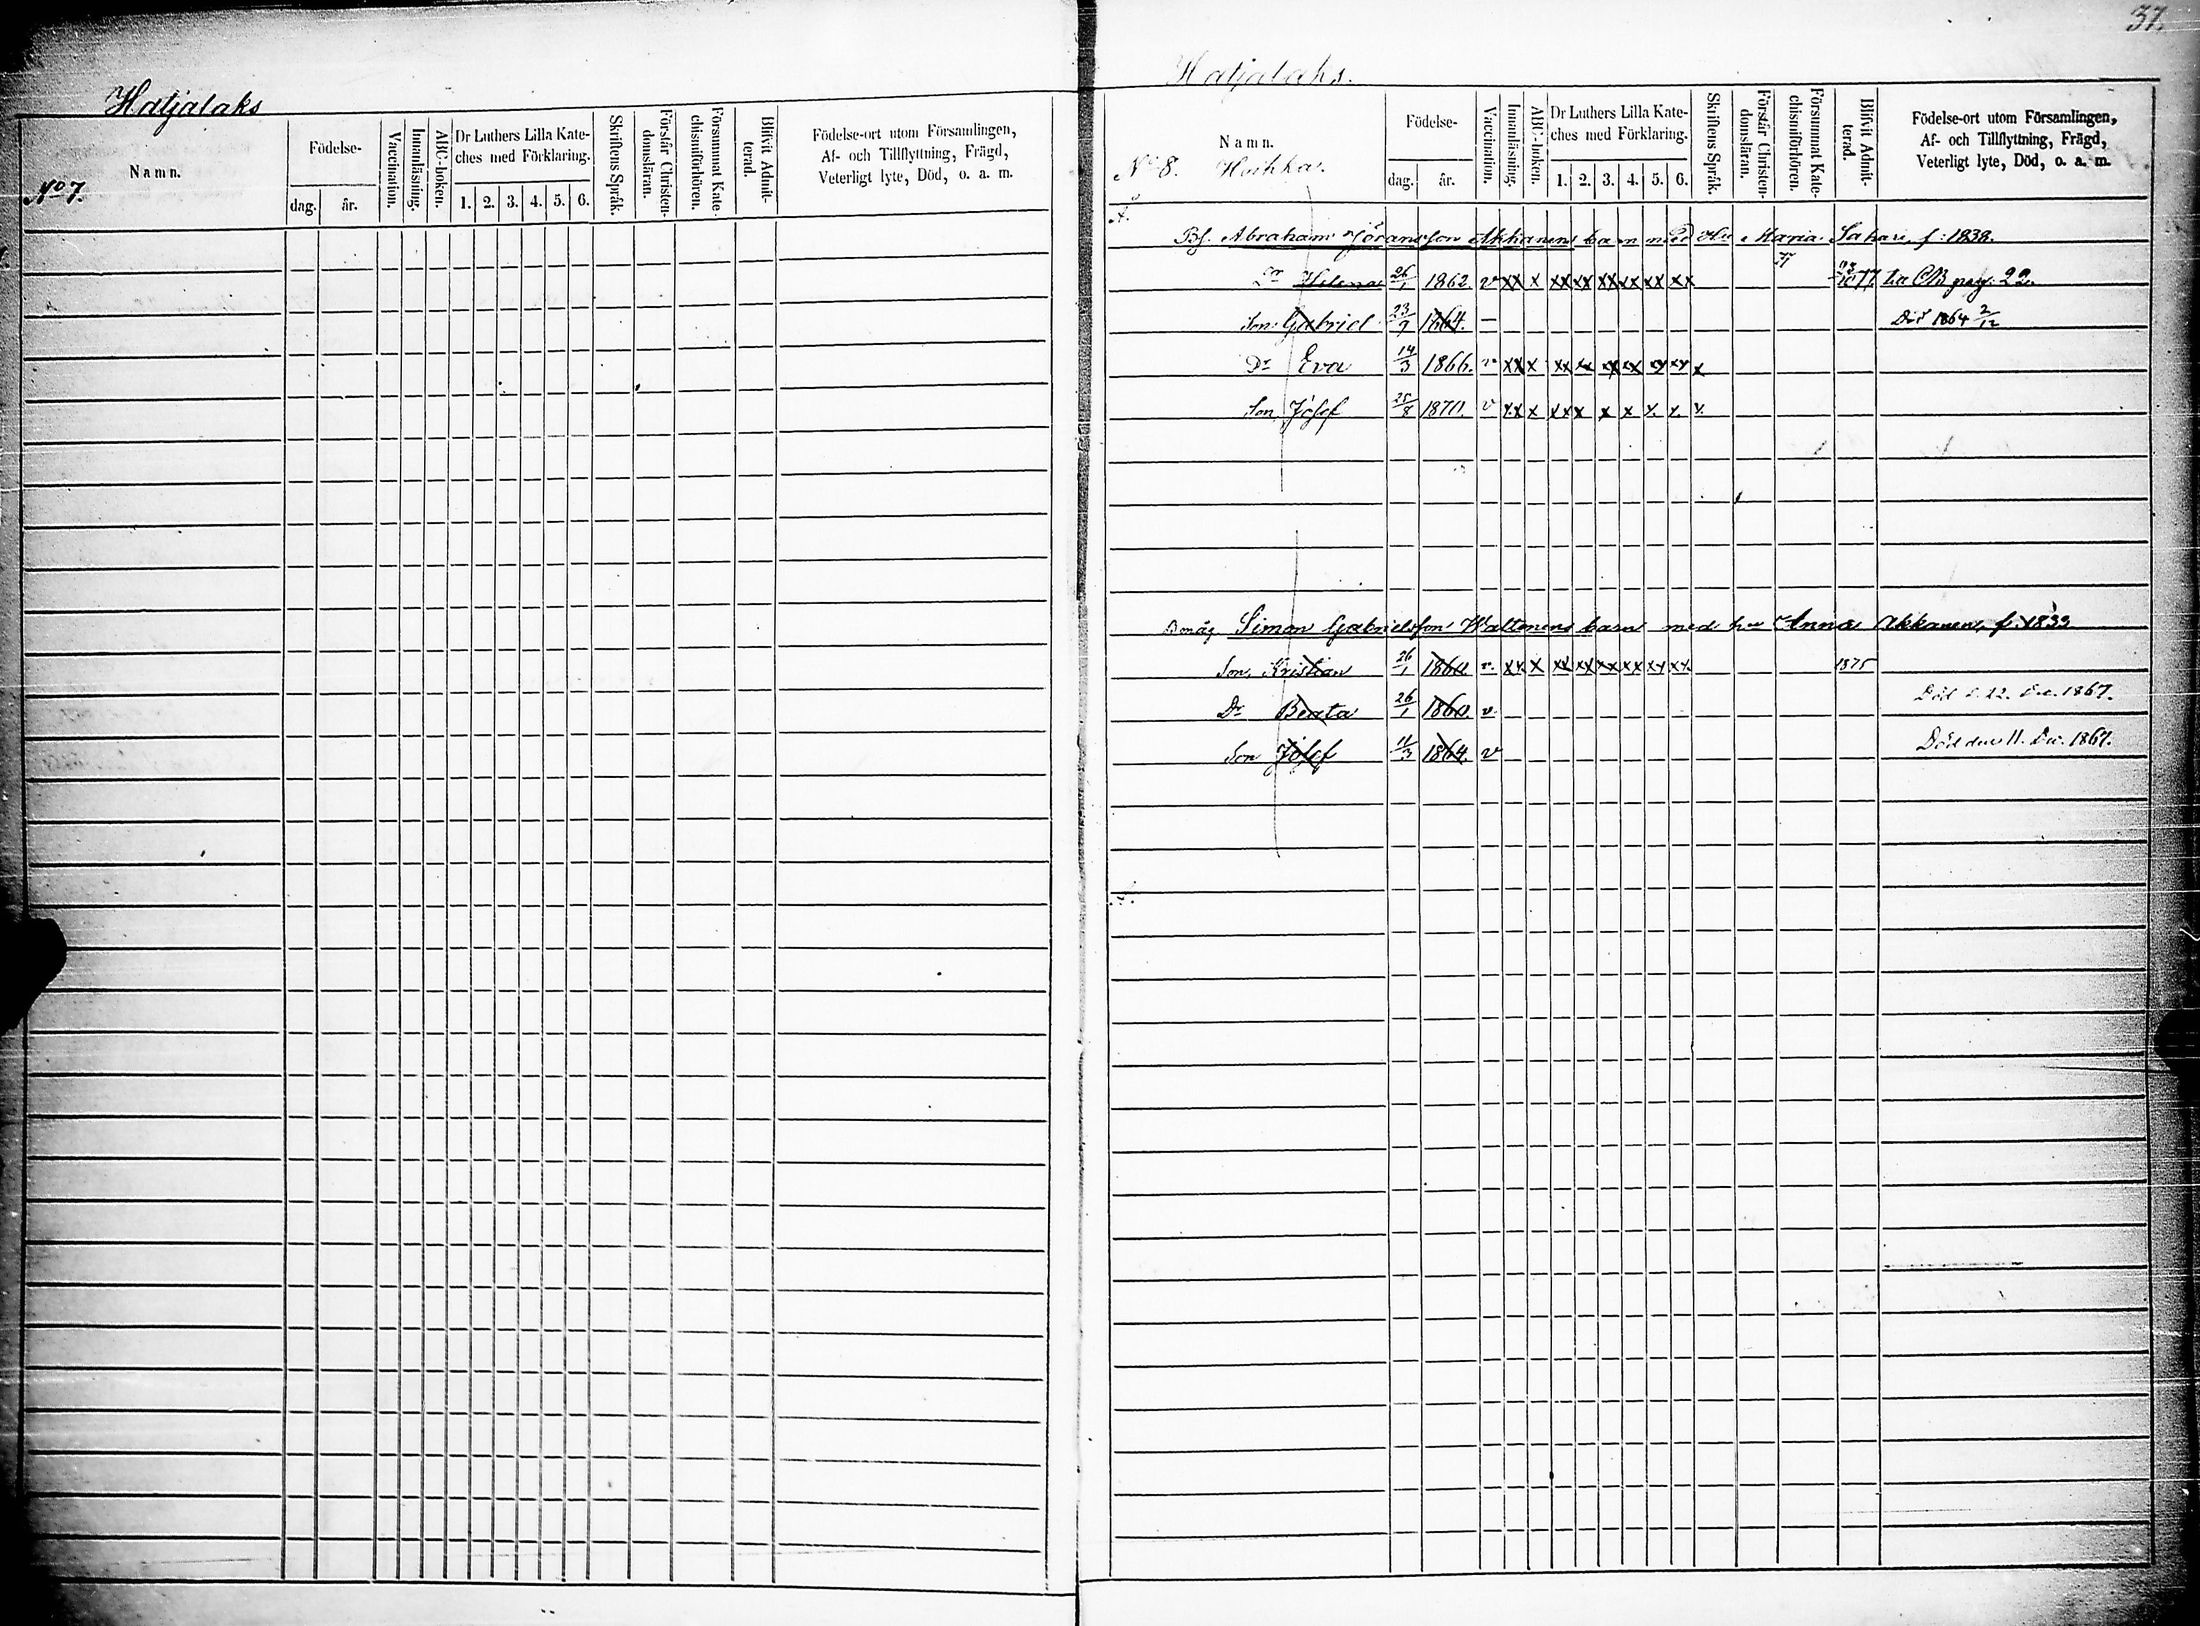 Hatjalaks
Namn.
No 7.
Födelse-
dag.
år.
Vaccination.
Innanläsning.
ABC-boken.
Dr Luthers Lilla Kate-
ches med Förklaring.
1. 2. 3. 4. 5. 6.
Skriftens Språk.
Förstår Christen-
domsläran.
Försummat Kate-
chismiförhören.
Blifvit Admit-
terad.
Födelse-ort utom Församlingen,
Af- och Tillflyttning, Frägd,
Veterligt lyte, Död, o. a. m.
37.
Hatjalaks.
Namn.
No 8.
Födelse-
dag.
år.
Vaccination.
Innanläsning.
ABC-boken.
Dr Luthers Lilla Kate-
ches med Förklaring.
1. 2. 3. 4. 5. 6.
Skriftens Språk.
Förstår Christen-
domsläran.
Försummat Kate-
chismiförhören.
Blifvit Admit-
terad.
Födelse-ort utom Församlingen,
Af- och Tillflyttning, Frägd,
Veterligt lyte, Död, o. a. m.
Abraham Göransson Akkanens barn med Hu Maria Sakari f: 1838.
Dr Helena 26/1 1862. v xx x xx xx xx xx xx xx 77 till CB pag. 22.
Son Gabriel 23/9 1864. — Död 1864 2/12
Dr Eva 14/3 1866. v xx x xx xx xx xx xy xy x
Son Josef 25/8 1870. v xx x xx x x x x. x. v.
Simon Gabrielsson Waltonens barn med hu Anna Akkanen, f. 1833
Son Kristian 26/1 1860 v. xx x xx xx xx xx xx xx 1875
Dr Beata 26/1 1860. v. Död d. 22. Dec. 1867.
Son Josef 11/3 1864. v Död den 11. Dec. 1867.